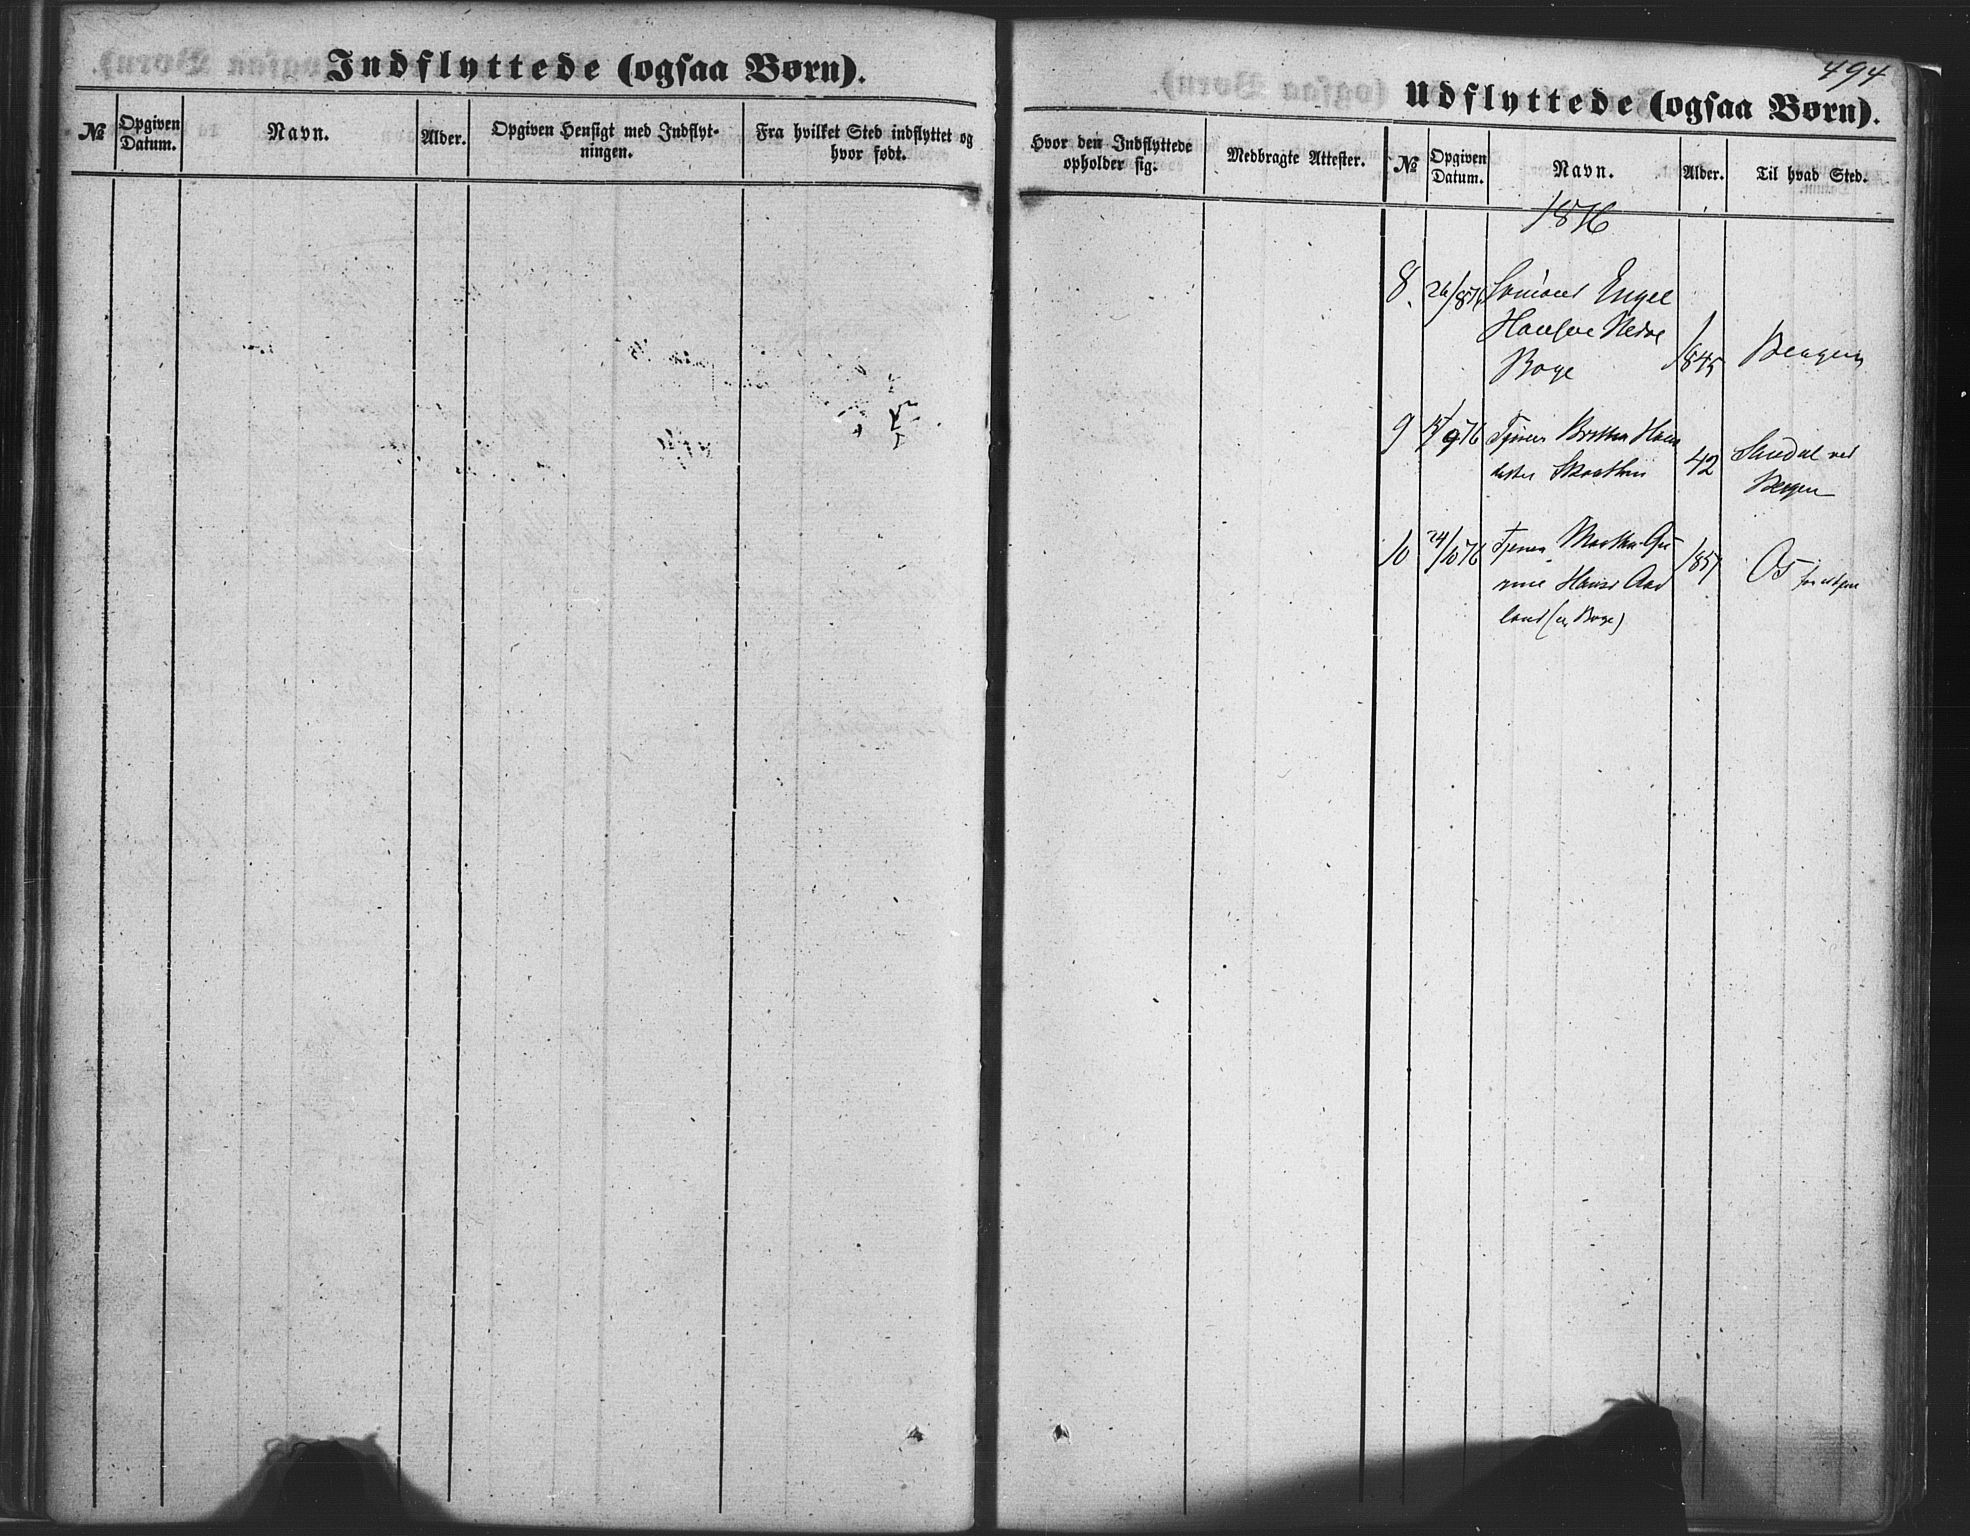 Indflyttede (ogsaa Børn).
№
Opgiven Datum.
Navn.
Alder.
Opgiven Hensigt med Indflyt-
ningen.
Fra hvilket Sted indflyttet og
hvor født.
494
Udflyttede (ogsaa Børn).
Hvor den Indflyttede
opholder sig.
Medbragte Attester.
№
Opgiven Datum.
Navn.
Alder.
Til hvad Sted.
1876
8. 26/8 76 Engel
Nedre
Boge 1845 Bergen
9 9 76 Brithe Hans
datter 42 ved
Bergen
10 24/10 76 Martha Gu
Hansd Aad
land (Boge) 1857 Os